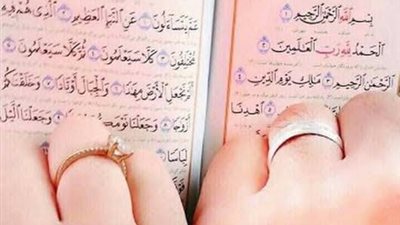 بِسْمِ اللَّهِ الرَّحْمَٰنِ الرَّحِيمِ ١
الْحَمْدُ لِلَّهِ رَبِّ الْعَٰلَمِينَ ٢
الرَّحْمَٰنِ الرَّحِيمِ ٣ مَٰلِكِ يَوْمِ الدِّينِ ٤
٥ اهْدِنَا
عَمَّ يَتَسَاءَلُونَ ١ عَنِ النَّبَإِ الْعَظِيمِ ٢ الَّذِي هُمْ فِيهِ
مُخْتَلِفُونَ ٣ كَلَّا سَيَعْلَمُونَ ٤ ثُمَّ كَلَّا سَيَعْلَمُونَ ٥
نَجْعَلِ الْأَرْضَ مِهَٰدًا ٦ وَالْجِبَالَ أَوْتَادًا ٧ وَخَلَقْنَٰكُمْ
أَزْوَٰجًا ٨ وَجَعَلْنَا نَوْمَكُمْ وَجَعَلْنَا الَّيْلَ
لِبَاسًا